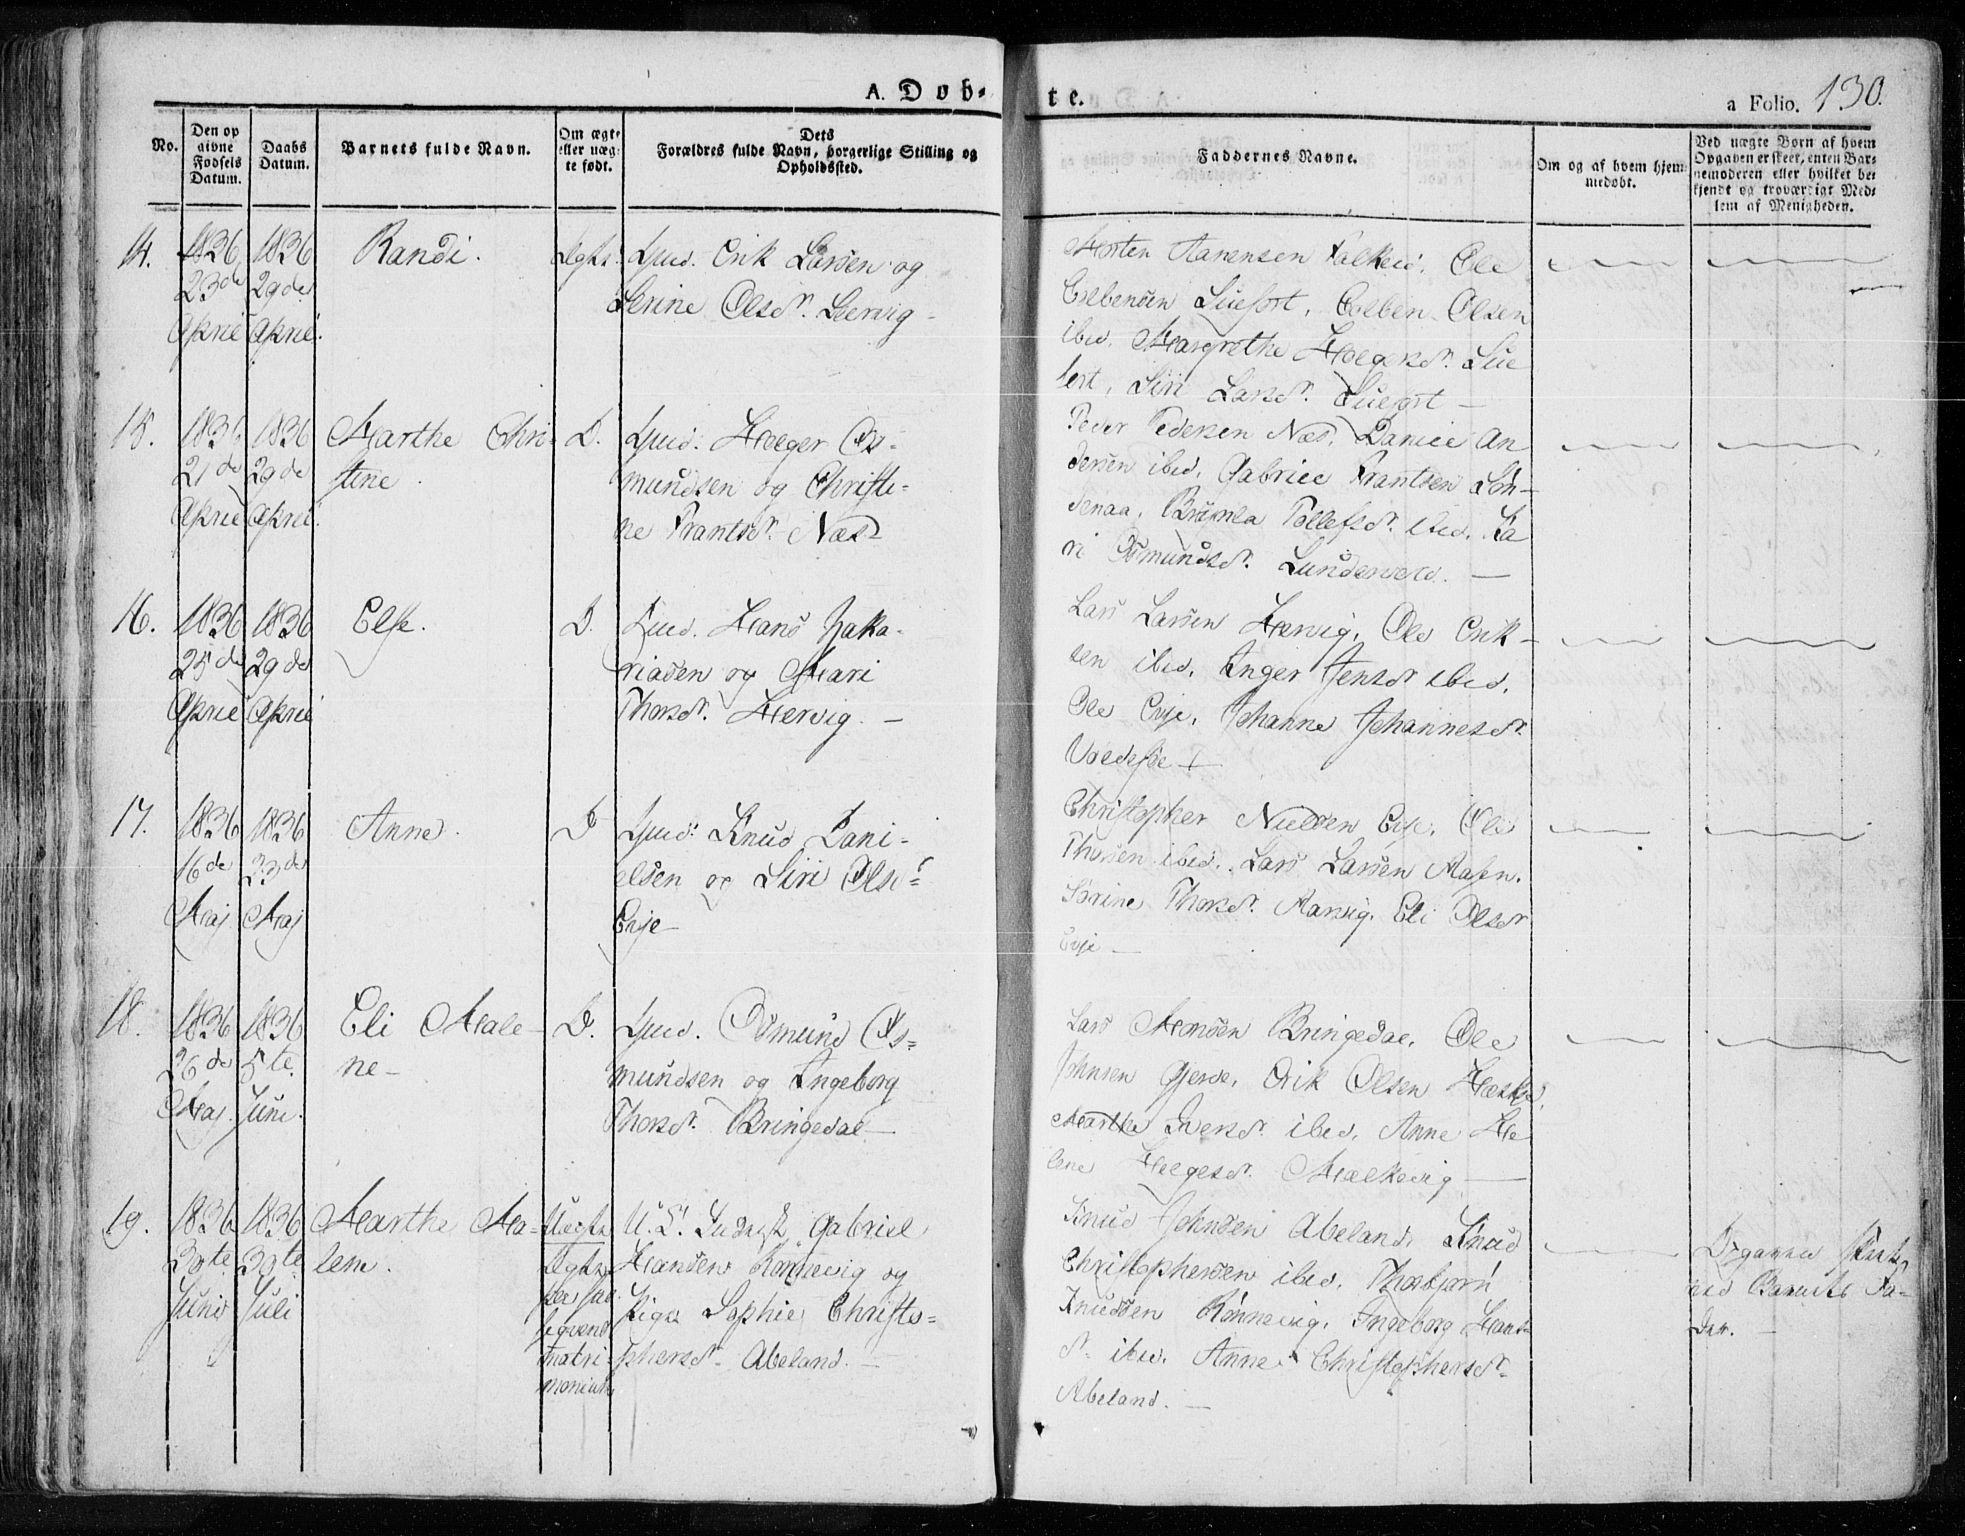 A. Døb-
te.
a Folio. 130.
No.
Den op
givne
Fødsels
Datum.
Daabs
Datum.
Barnets fulde Navn.
Om ægte
eller uæg-
te født.
Dets
Forældres fulde Navn, borgerlige Stilling og
Opholdssted.
Faddernes Navne.
Om og af hvem hjem-
medøbt.
Ved uægte Børn af hvem
Opgaven er skeet, enten Bar-
nemoderen eller hvilket be-
kjendt og troværdigt Med-
lem af Menigheden.
14.
1836
23de
April
1836
29de
April
Randi.
Ægte
Gmd. Erik Larsen og
Serine Olsdr. Lervig -
Morten Aanensen Falkeid, Ole
Colbensen Suefort, Colben Olsen
ibid. Margrethe Holgersdr. Sue
fort, Siri Larsdr. Suefort -
15.
1836
21de
April
1836
29de
April
Marthe Chri-
stine
D.
Gmd. Holger Os-
mundsen og Christi-
ne Frantsdr. Næs
Peder Pedersen Næs, Daniel An
dersen ibid, Gabriel Frantsen Lin-
denaa, Brynla Tollefsdr. ibid, Ka
ri Osmundsdr. Lundervold. -
16.
1836
25de
April
1836
29de
April
Else.
D.
Gmd. Hans Zaka-
riasen og Mari
Thorsdr. Hervig. -
Lars Larsen Hervig, Ole Erik-
sen ibid, Inger Jensdr ibid.
Ole Evje, Johanne Johannesdr.
17.
1836
16de
Maj
1836
23de
Maj
Anne.
D
Gmd. Knud Dani-
elsen og Siri Olsdr
Evje -
Christopher Nielsen Evje, Ole
Thorsen ibid. Lars Larsen Aasen.
Serine Thorsdr. Aarvig. Eli Olsdr
Evje -
18.
1836
26de
Maj.
1836
5te
Juni.
Eli Male-
ne -
D.
Gmd. Osmund Os-
mundsen og Ingeborg
Thorsdr. Bringedal -
Lars Monsen Bringedal, Ole
Johnsen Gjerde, Erik Olsen
Marthe Iversdr. ibid, Anne He
lene Helgesdr. Mælkevig -
19.
1836
30te
Juni
1836
30te
Juli
Marthe Ma-
lene.
Uægte
Ægte
per sub
seqvens
matri-
monium
U. S. Gabriel
Hansen Rønnevig og
Pige Sophie Christo-
phersdr. Abeland. -
Knud Johnsen Abeland, Knud
Christophersen ibid, Thorbjørn
Knudsen Rønnevig, Ingeborg Hans
dr. ibid. Anne Christophersdr.
Abeland. -
Opgaven skeet
ved Barnets Fa-
der. -